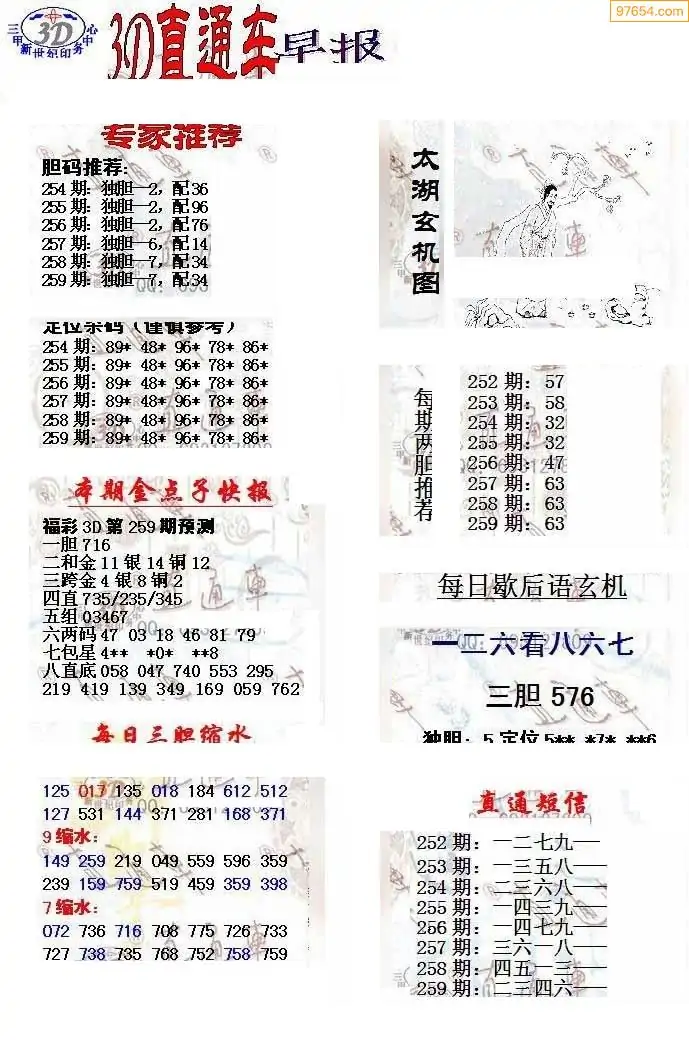 97654.com
三甲 3D 中心
新世纪印务
3D直通车早报
专家推荐
胆码推荐:
254期: 独胆—2, 配36
255期: 独胆—2, 配96
256期: 独胆—2, 配76
257期: 独胆—6, 配14
258期: 独胆—7, 配34
259期: 独胆—7, 配34
定位杀码（谨慎参考）
254期: 89* 48* 96* 78* 86*
255期: 89* 48* 96* 78* 86*
256期: 89* 48* 96* 78* 86*
257期: 89* 48* 96* 78* 86*
258期: 89* 48* 96* 78* 86*
259期: 89* 48* 96* 78* 86*
本期金点子快报
福彩3D第259期预测
一胆716
二和金11银14铜12
三跨金4银8铜2
四直735/235/345
五组03467
六两码47 03 18 46 81 79
七包星4** *0* **8
八直底058 047 740 553 295
219 419 139 349 169 059 762
每日三胆缩水
125 017 135 018 184 612 512
127 531 144 371 281 168 371
9缩水:
149 259 219 049 559 596 359
239 159 759 519 459 359 398
7缩水:
072 736 716 708 775 726 733
727 738 735 768 752 758 759
太湖玄机图
每期两胆推荐
252期: 57
253期: 58
254期: 32
255期: 32
256期: 47
257期: 63
258期: 63
259期: 63
每日歇后语玄机
一二六看八六七
三胆 576
独胆: 5 定位5** *7* **6
直通短信
252期: 一二七九一
253期: 一三五八一
254期: 二三六八一
255期: 一四三九一
256期: 一四七九一
257期: 三六一八一
258期: 四五一三一
259期: 二三四六一